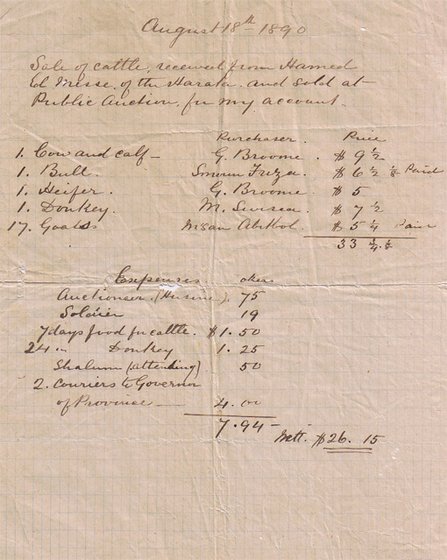 August 18th 1890
Sale of cattle, received from Hamed
of the Haraka and sold at
Public Auction, for my account.
Purchaser. Price
1. Cow and calf - G. Broome. $ 9 1/2
1. Bull. $ 6 1/2 1/8 Paid
1. Heifer. G. Broome. $ 5
1. Donkey. M. $ 7 1/2
17. Goats $ 5 1/4 Paid
33 3/4.1/8
Expenses
Auctioneer 75
Soldier 19
7 days food for cattle. $1.50
24 " Donkey 1.25
Shalum (attending) 50
2. Couriers to Governor
of Province 4.00
7.94 -
Nett. $26.15